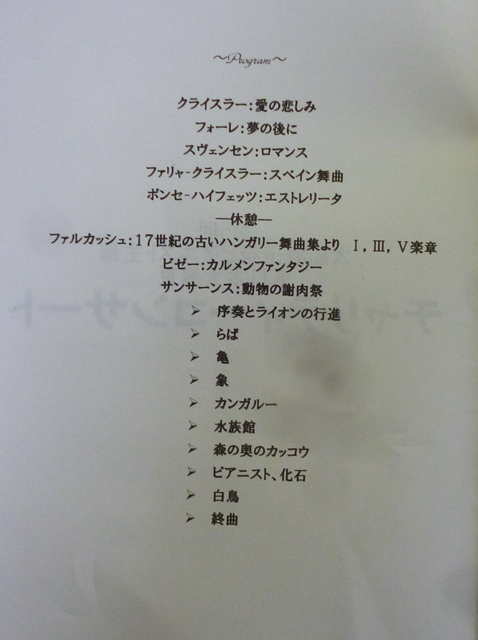 ～Program～
クライスラー：愛の悲しみ
フォーレ：夢の後に
スヴェンセン：ロマンス
ファリャ-クライスラー：スペイン舞曲
ポンセ-ハイフェッツ：エストレリータ
―休憩―
ファルカッシュ：17世紀の古いハンガリー舞曲集より Ⅰ，Ⅲ，Ⅴ楽章
ビゼー：カルメンファンタジー
サンサーンス：動物の謝肉祭
➢ 序奏とライオンの行進
➢ らば
➢ 亀
➢ 象
➢ カンガルー
➢ 水族館
➢ 森の奥のカッコウ
➢ ピアニスト、化石
➢ 白鳥
➢ 終曲